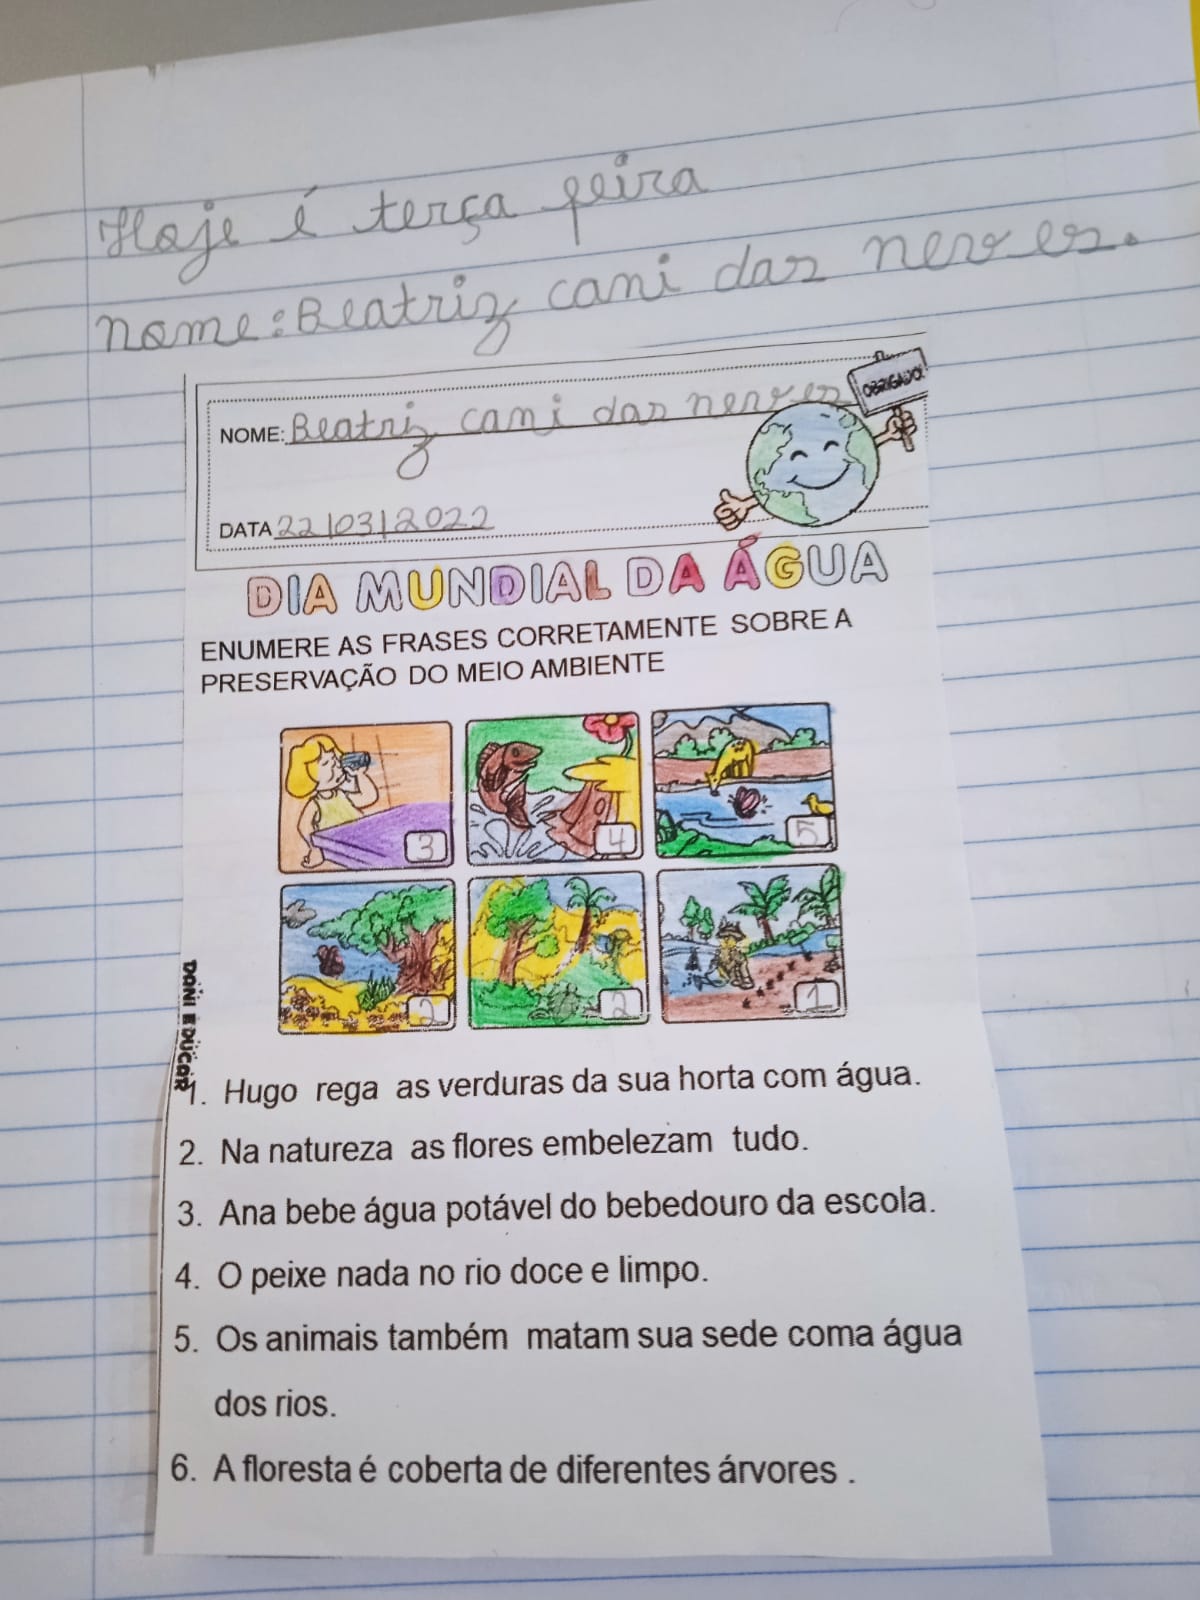 Hoje é terça feira
nome: Beatriz cani das nerves.
OBRIGADO!
NOME: Beatriz cani das nerves
DATA 22/03/2022
DIA MUNDIAL DA ÁGUA
ENUMERE AS FRASES CORRETAMENTE SOBRE A
PRESERVAÇÃO DO MEIO AMBIENTE
3 4 5
2 2 1
DANI EDUCAR
1. Hugo rega as verduras da sua horta com água.
2. Na natureza as flores embelezam tudo.
3. Ana bebe água potável do bebedouro da escola.
4. O peixe nada no rio doce e limpo.
5. Os animais também matam sua sede coma água
dos rios.
6. A floresta é coberta de diferentes árvores .